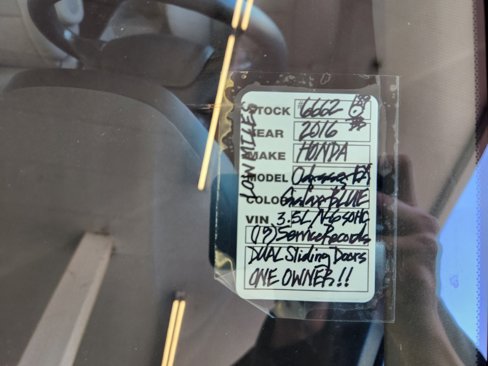 LOW MILES
STOCK #6662
YEAR 2016
MAKE HONDA
MODEL Odyssey EX
COLOR BLUE
VIN 3.5L/V-6 SOHC
(13) Service Records
DUAL Sliding Doors
ONE OWNER!!